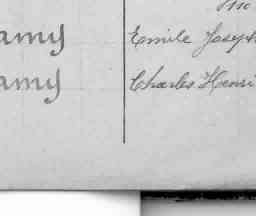 amy Emile Joseph
amy Charles Henri